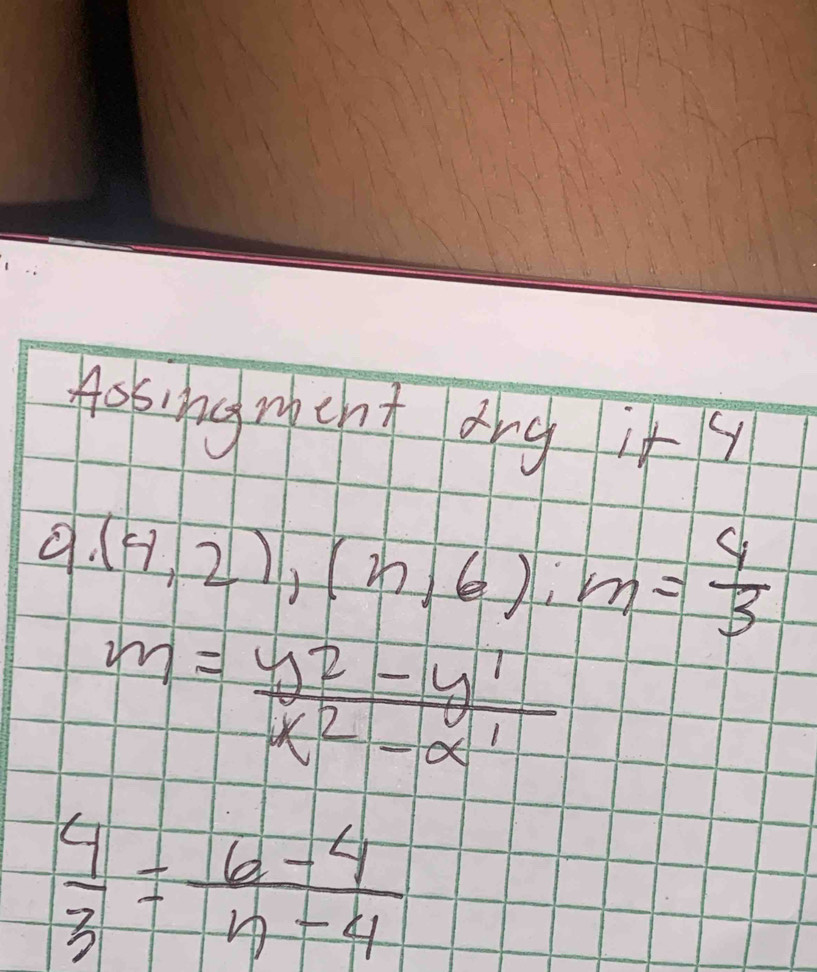 Assingment try it 4
a.(4,2),(n,6); m = 4/3
m = y2 - y1 / x2 - x1
4/3 = 6 - 4 / n - 4